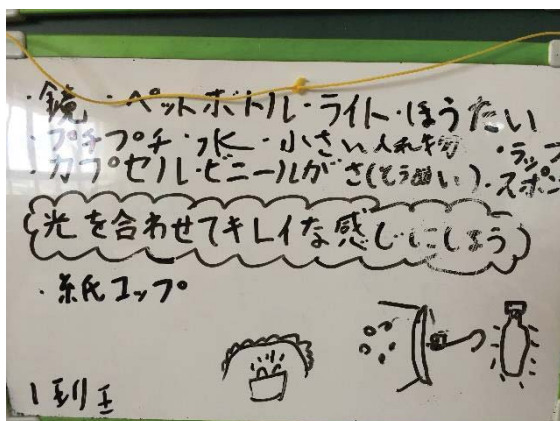 ・鏡・ペットボトル・ライト・ほうたい
・プチプチ・水・小さい入れ物・ラップ
・カプセル・ビニールがさ(とうめい)・スポ
光を合わせてキレイな感じにしよう
・紙コップ
1班